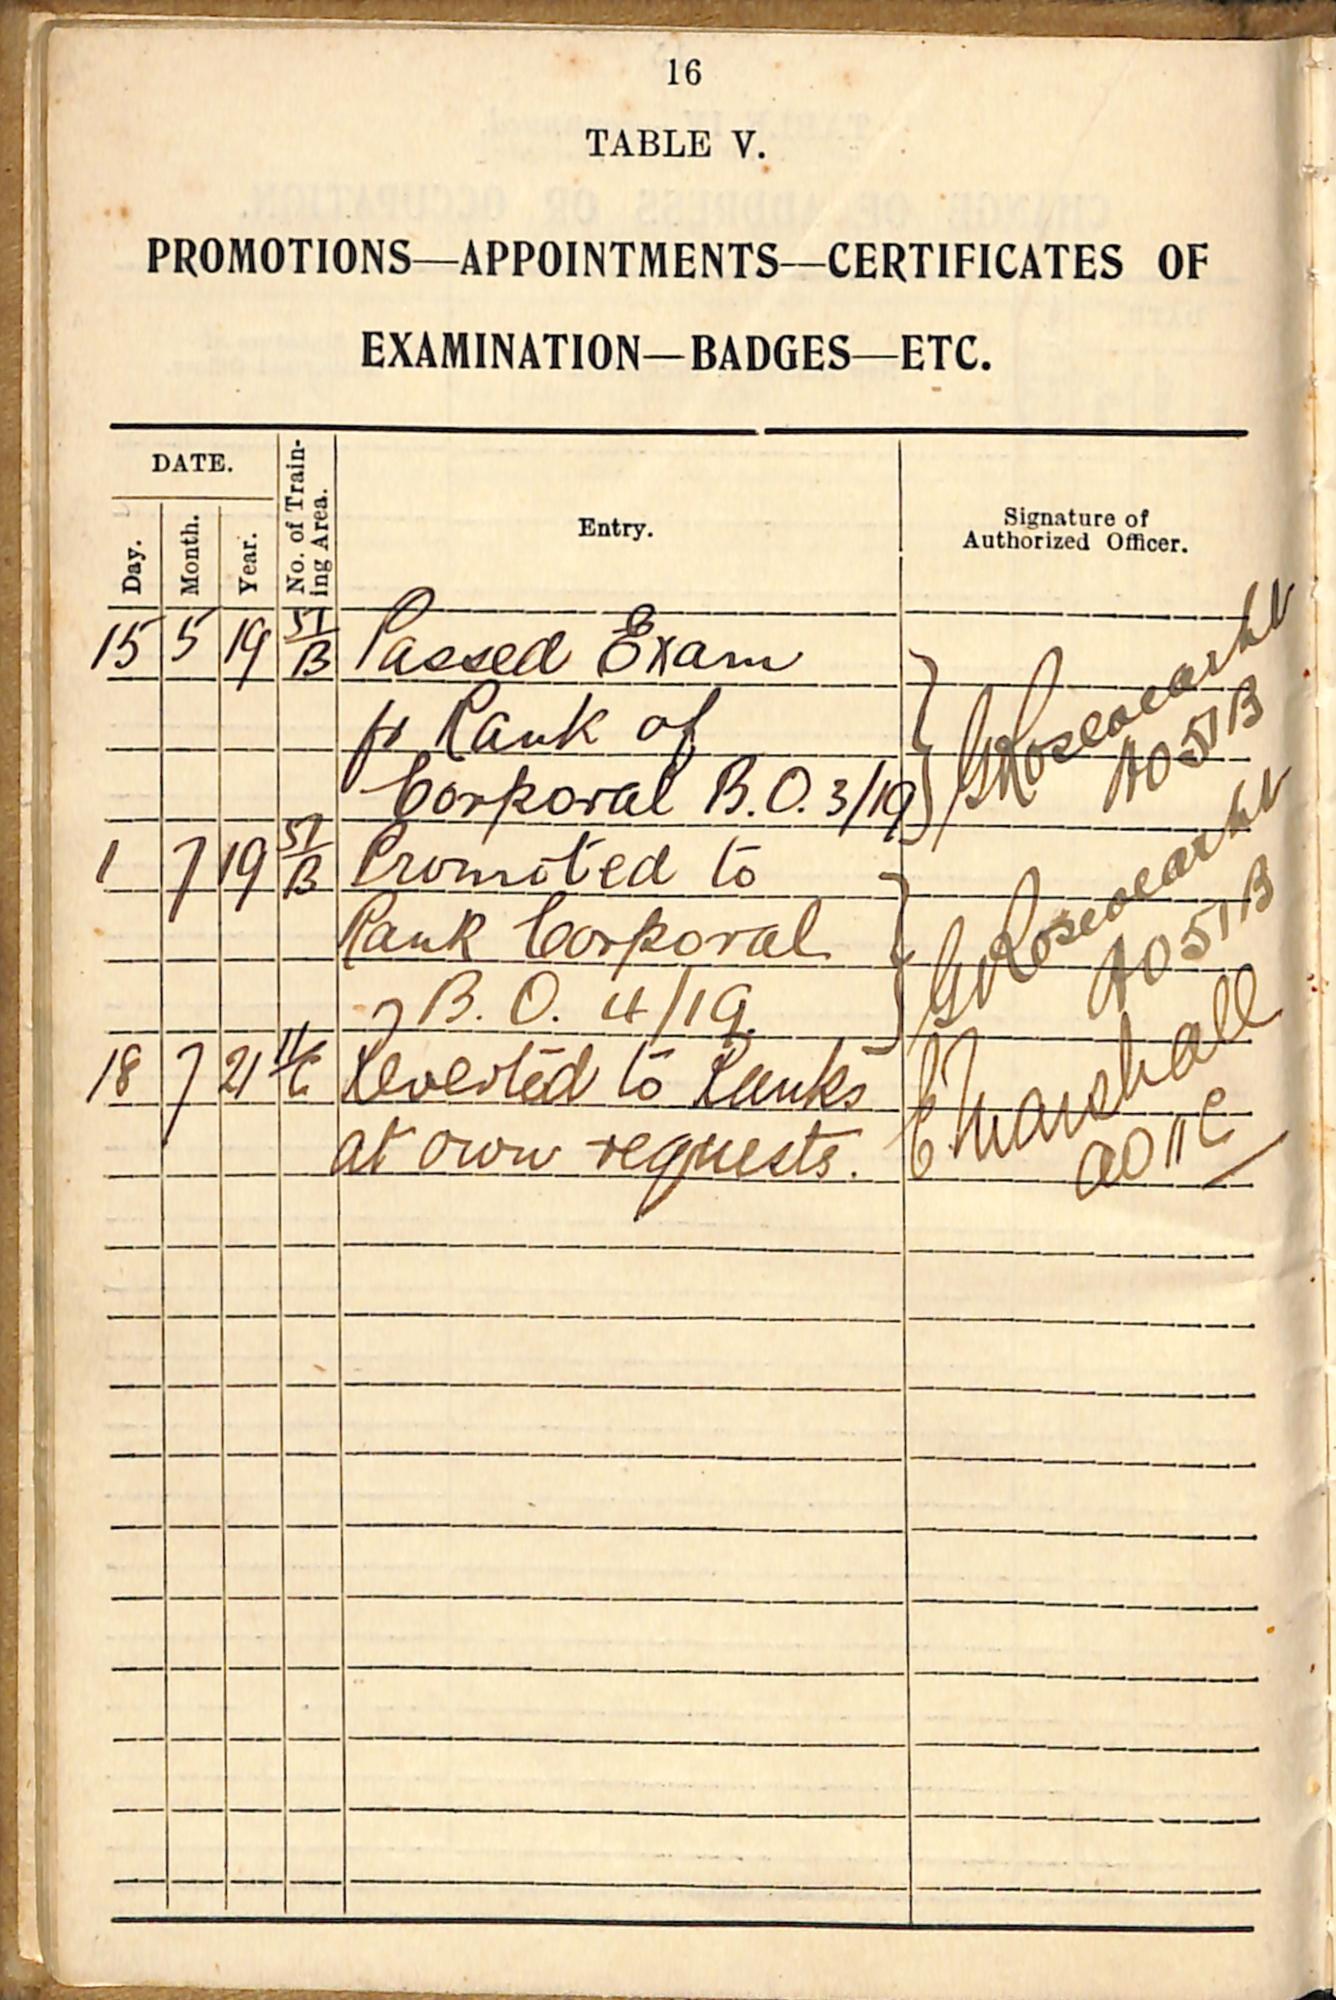 16
TABLE V.
PROMOTIONS—APPOINTMENTS—CERTIFICATES OF
EXAMINATION—BADGES—ETC.
DATE.
Day.
Month.
Year.
No. of Train-
ing Area.
Entry.
Signature of
Authorized Officer.
15 5 19 51/B Passed Exam
fr Rank of
Corporal B.O. 3/19
AO 51B
1 7 19 51/B Promoted to
Rank Corporal
B.O. 4/19
AO 51B
18 7 21 11/C Reverted to Ranks C Marshall
at own requests. AO 11C